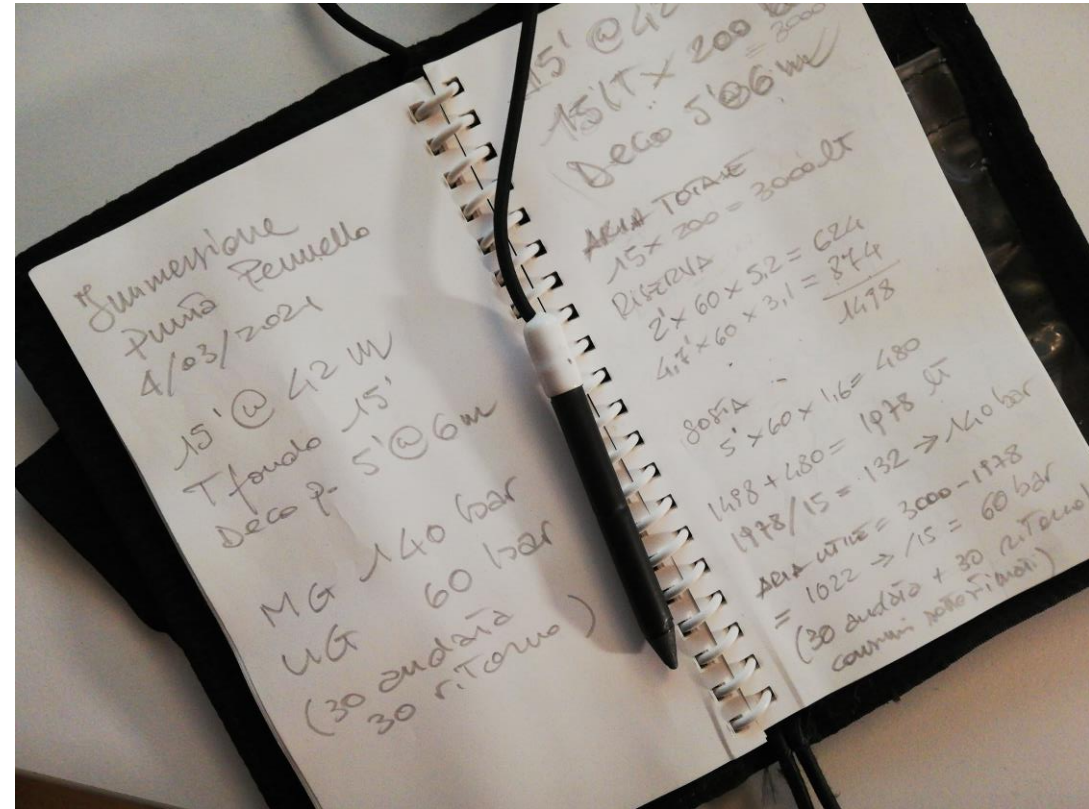 Immersione
Punta Pennello
4/03/2021
15' @ 42 m
T fondo 15'
Deco p. 5'@6m
MG 140 bar
UG 60 bar
(30 andata
30 ritorno)
15' @ 42
15 lT x 200
= 3000
Deco 5'@6m
ARIA TOTALE
15x 200 = 3000 lt
RISERVA
2' x 60 x 5,2 = 624
4,7' x 60 x 3,1 = 874
1498
SOSTA
5' x 60 x 1,6 = 480
1498 + 480 = 1978 lt
1978/15 = 132 → 140 bar
ARIA UTILE = 3000 - 1978
= 1022 → /15 = 60 bar
(30 andata + 30 ritorno
consumi)